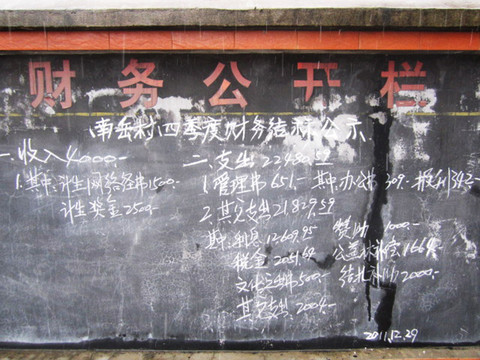 财务公开栏
南岳村四季度财务结算公示
一.收入4000.-
1.其中:计生网络经费1500.-
计生奖金2500.-
二.支出22480.59
1.管理费651.- 其中:办公费309.- 报刊342.-
2.其它支出21,829.59
其中:利息12609.95 赞助 1000.-
税金2051.64 公益林补偿1664.-
文化 费500.- 结扎补助2000.-
其它支出2004.-
2011.12.29